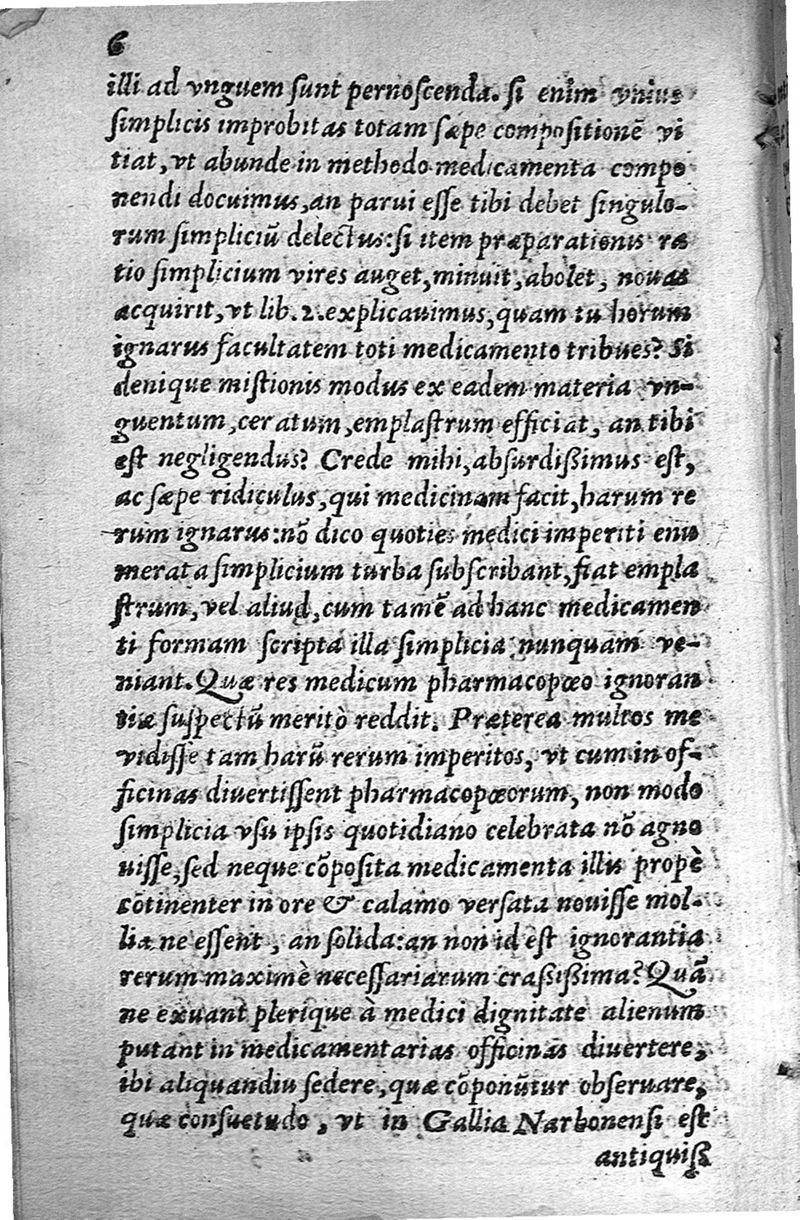 6
illi ad vnguem ſunt pernoſcenda. ſi enim vnius
ſimplicis improbitas totam ſæpe compoſitionē vi
tiat, vt abunde in methodo medicamenta compo
nendi docuimus, an parui eſſe tibi debet ſingulo-
rum ſimpliciū delectus: ſi item præparationis ra
tio ſimplicium vires auget, minuit, abolet, nouas
acquirit, vt lib. 2. explicauimus, quam tu horum
ignarus facultatem toti medicamento tribues? Si
denique miſtionis modus ex eadem materia vn-
guentum, ceratum, emplaſtrum efficiat, an tibi
eſt negligendus? Crede mihi, abſurdißimus eſt,
ac ſæpe ridiculus, qui medicinam facit, harum re
rum ignarus: nō dico quoties medici imperiti enu
merata ſimplicium turba ſubſcribant, fiat empla
ſtrum, vel aliud, cum tamē ad hanc medicamen
ti formam ſcripta illa ſimplicia nunquam ve-
niant. Quæ res medicum pharmacopœo ignoran
tiæ ſuſpectū meritò reddit. Præterea multos me
vidiſſe tam harū rerum imperitos, vt cum in of-
ficinas diuertiſſent pharmacopœorum, non modo
ſimplicia vſu ipſis quotidiano celebrata nō agno
uiſſe, ſed neque cōpoſita medicamenta illis propè
cōtinenter in ore & calamo verſata nouiſſe mol-
lia ne eſſent, an ſolida: an non id eſt ignorantia
rerum maximè neceſſariarum craßißima? Quā
ne exuant plerique à medici dignitate alienum
putant in medicamentarias officinas diuertere,
ibi aliquandiu ſedere, quæ cōponūtur obſeruare,
quæ conſuetudo, vt in Gallia Narbonenſi eſt
antiquiß